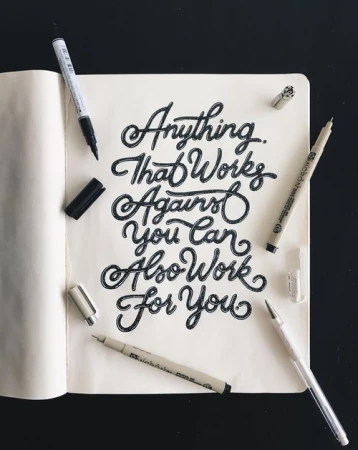 Anything.
That Works
Against
You Can
Also Work
For You